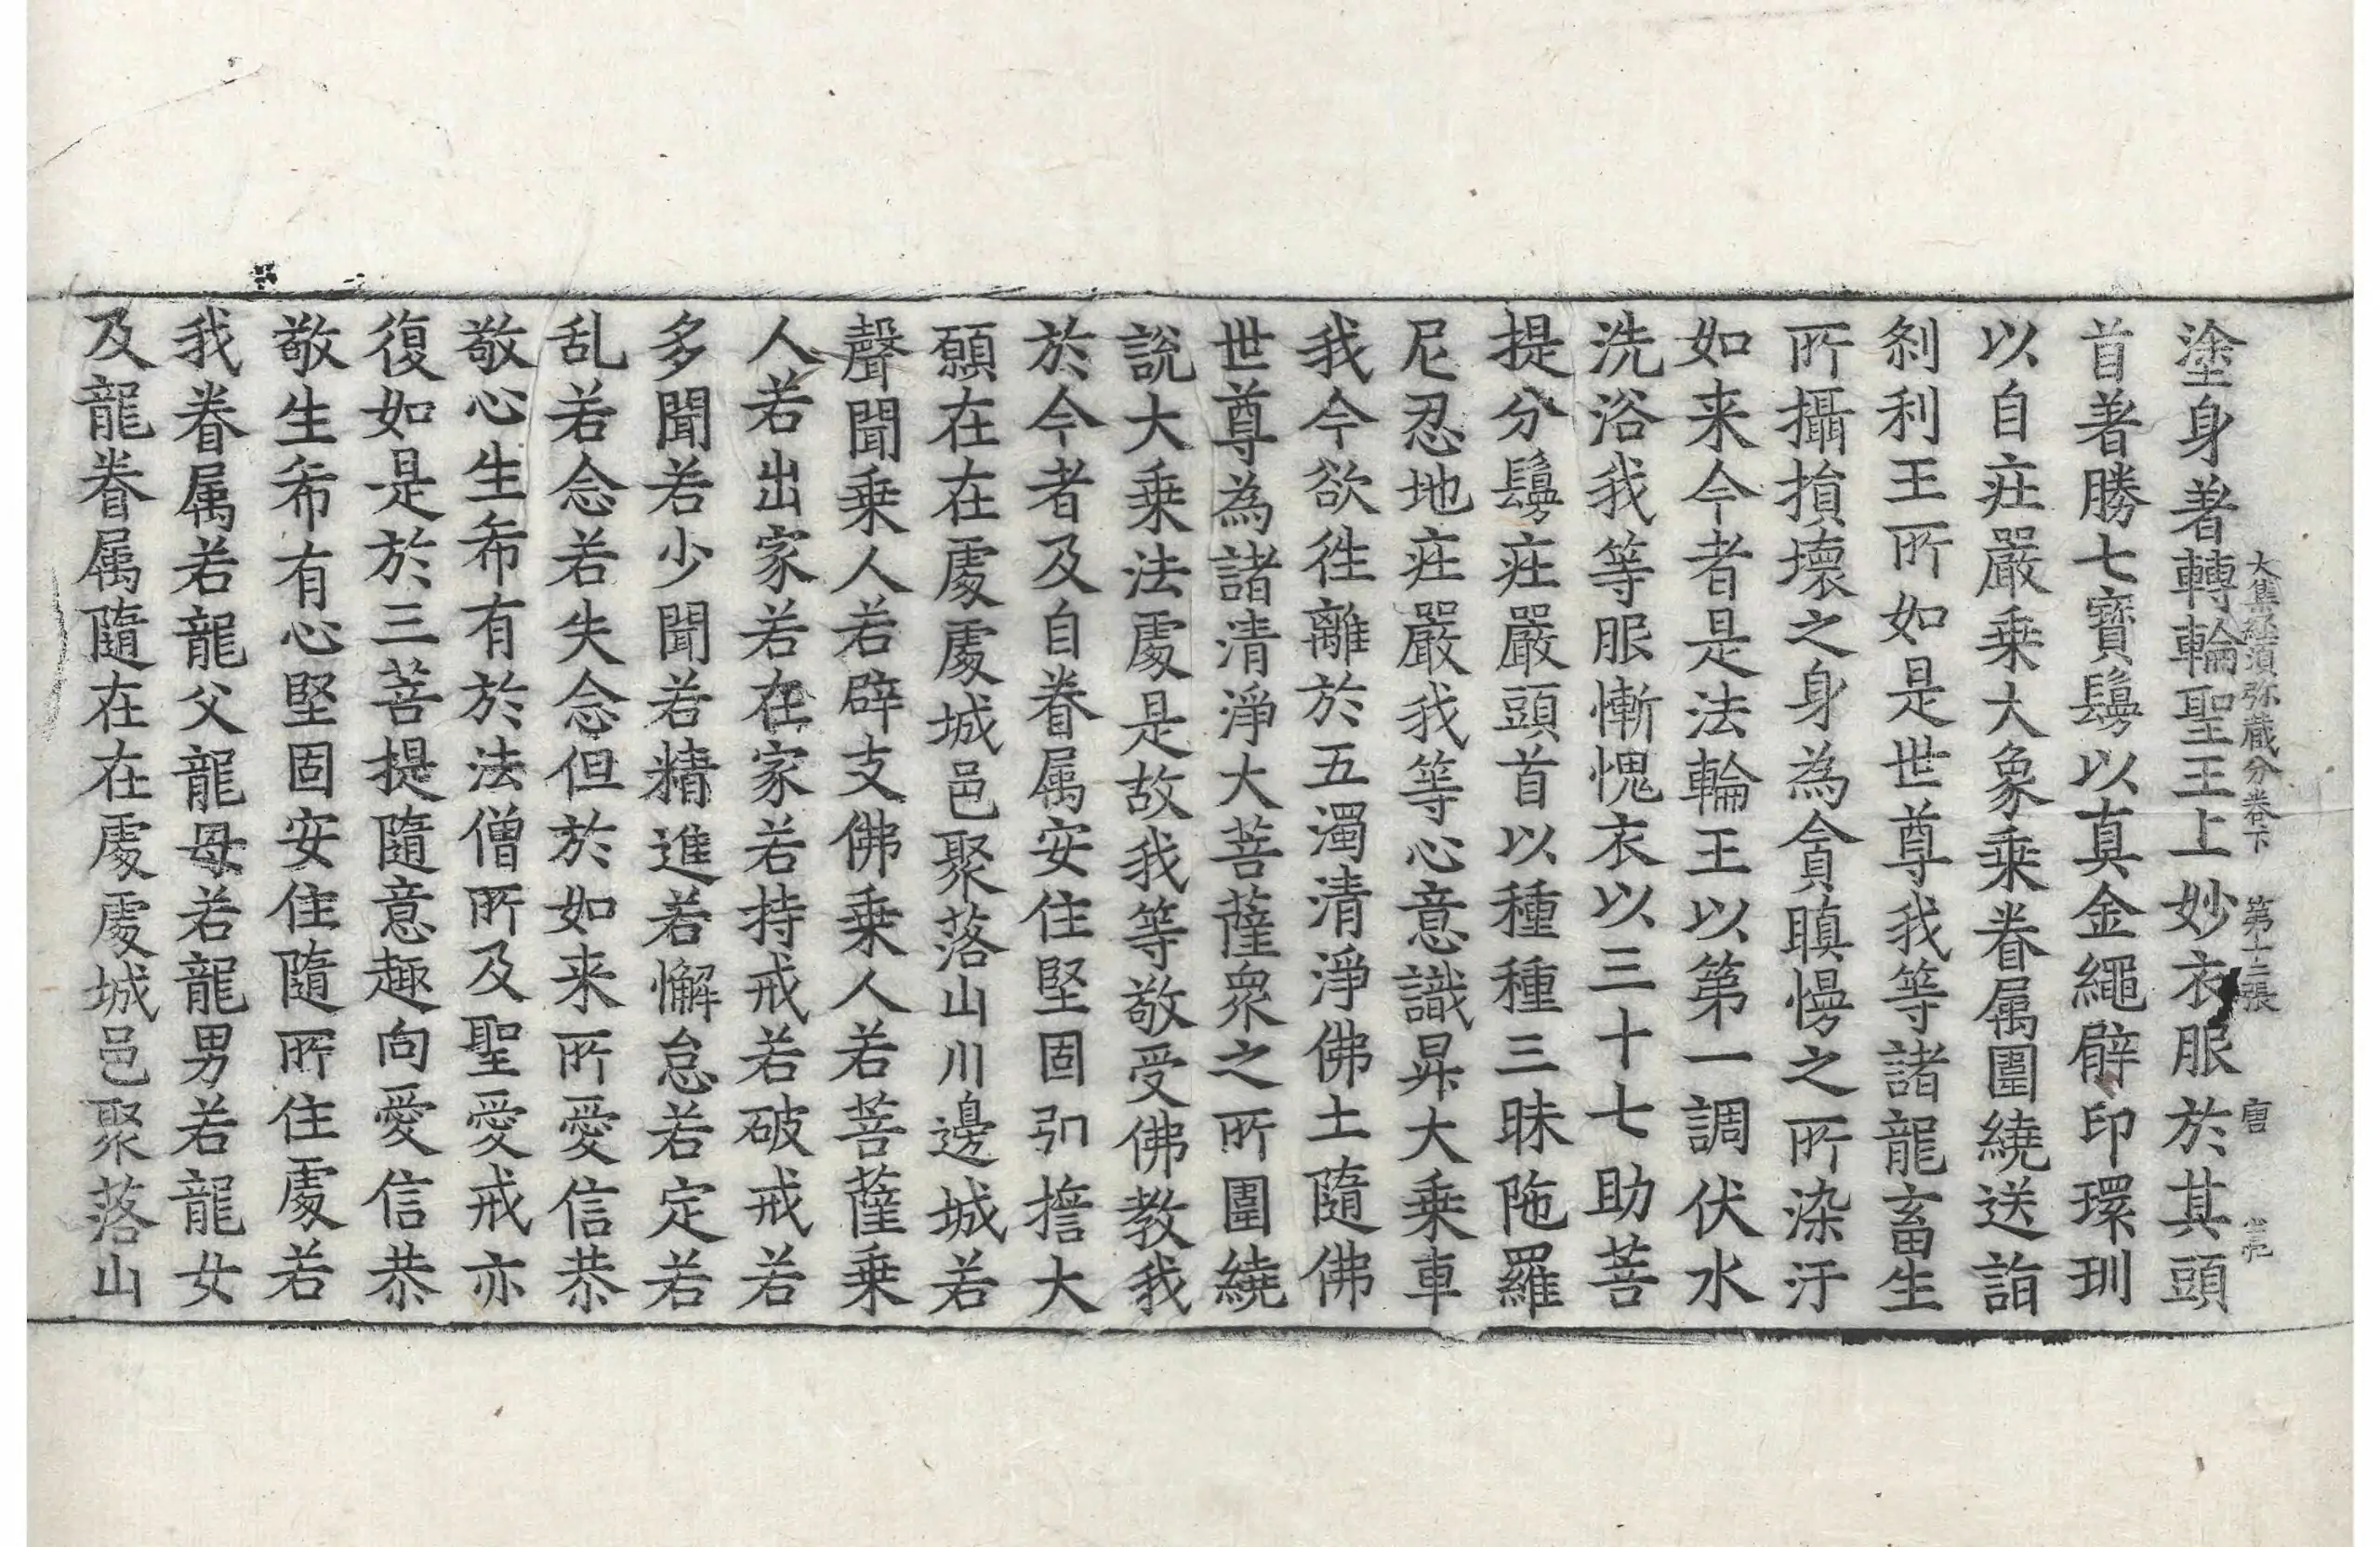 大集經須弥蔵分卷下 第十三張 唐
塗身著轉輪聖王上妙衣服於其頭
首著勝七寶鬘以真金繩臂印環玔
以自㽵嚴乗大象乗眷属圍繞送詣
刹利王所如是世尊我等諸龍畜生
所攝損壊之身為貪瞋慢之所染汙
如来今者是法輪王以第一調伏水
洗浴我等服慚愧衣以三十七助菩
提分鬘㽵嚴頭首以種種三昧陁羅
尼忍地㽵嚴我等心意識昇大乗車
我今欲徃離於五濁清淨佛土隨佛
世尊為諸清淨大菩薩衆之所圍繞
說大乗法處是故我等敬受佛教我
於今者及自眷属安住堅固引擔大
願在在處處城邑聚落山川邊城若
聲聞乗人若辟支佛乗人若菩薩乗
人若出家若在家若持戒若破戒若
多聞若少聞若精進若懈怠若定若
乱若念若失念但於如来所愛信恭
敬心生希有於法僧所及聖愛戒亦
復如是於三菩提隨意趣向愛信恭
敬生希有心堅固安住隨所住處若
我眷属若龍父龍母若龍男若龍女
及龍眷属隨在在處處城邑聚落山